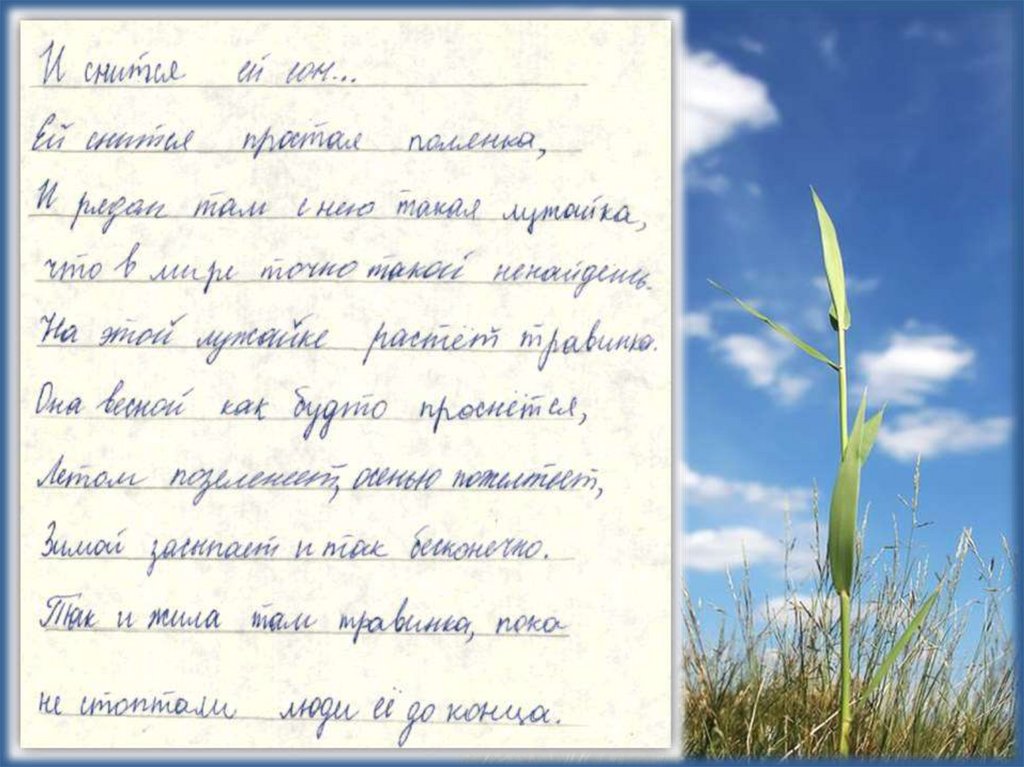 И снится ей сон...
Ей снится простая полянка,
И рядан там с нею такая лужайка,
что в мире точно такой ненайдешь.
На этой лужайке растёт травинка.
Она весной как будто проснётся,
Летом позеленеет, осенью пожелтеет,
Зимой засыпает и так бесконечно.
Так и жила там травинка, пока
не стоптали люди её до конца.